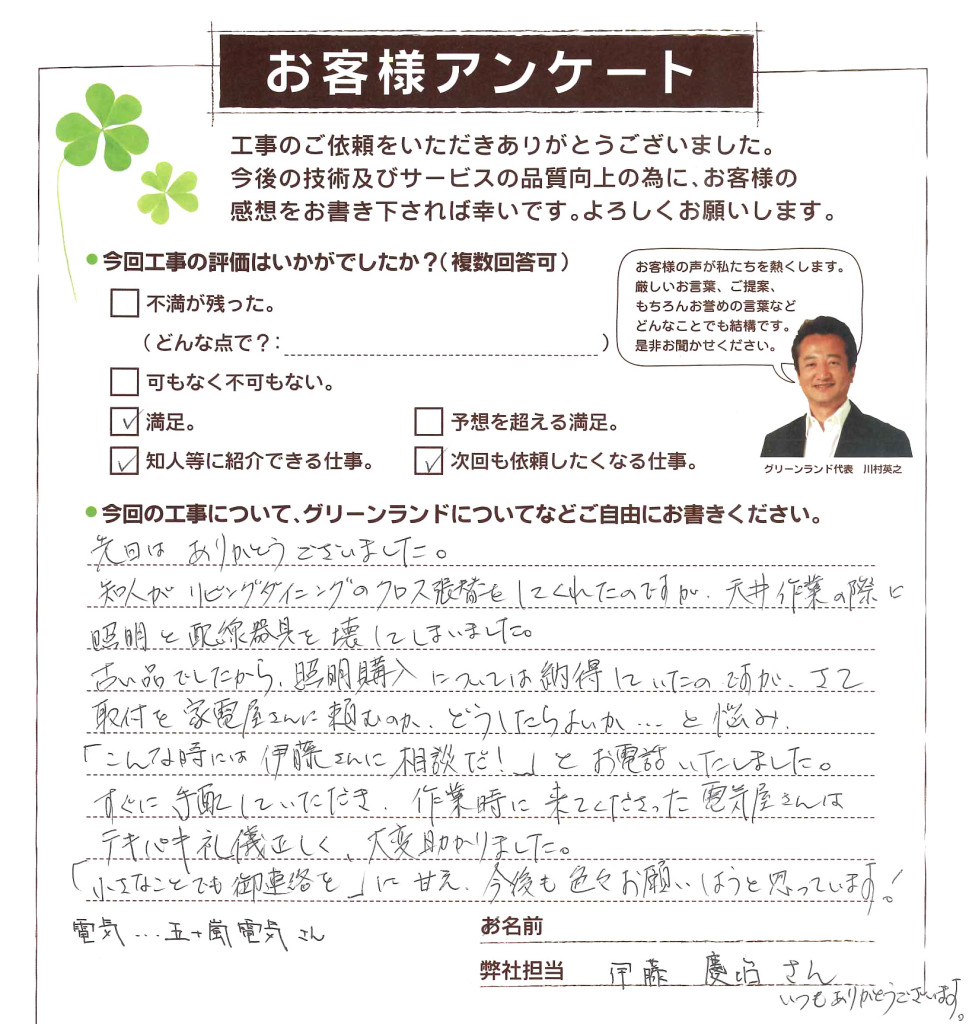 お客様アンケート
工事のご依頼をいただきありがとうございました。
今後の技術及びサービスの品質向上の為に、お客様の
感想をお書き下されば幸いです。よろしくお願いします。
●今回工事の評価はいかがでしたか？(複数回答可)
不満が残った。
(どんな点で？: )
可もなく不可もない。
満足。
予想を超える満足。
知人等に紹介できる仕事。
次回も依頼したくなる仕事。
お客様の声が私たちを熱くします。
厳しいお言葉、ご提案、
もちろんお誉めの言葉など
どんなことでも結構です。
是非お聞かせください。
グリーンランド代表 川村英之
●今回の工事について、グリーンランドについてなどご自由にお書きください。
先日は ありがとうございました。
知人が リビングダイニングのクロス張替をしてくれたのですが、天井作業の際に
照明と配線器具を壊してしまいました。
古い品でしたから、照明購入については納得していたのですが、さて
取付を家電屋さんに頼むのか、どうしたらよいか…と悩み、
「こんな時には伊藤さんに相談だ！」とお電話いたしました。
すぐに手配していただき、作業時に来てくださった電気屋さんは
テキパキ礼儀正しく、大変助かりました。
「小さなことでも御連絡を」に甘え、今後も色々お願いしようと思っています！
電気…五十嵐電気さん
お名前
弊社担当 伊藤 慶治さん
いつもありがとうございます。